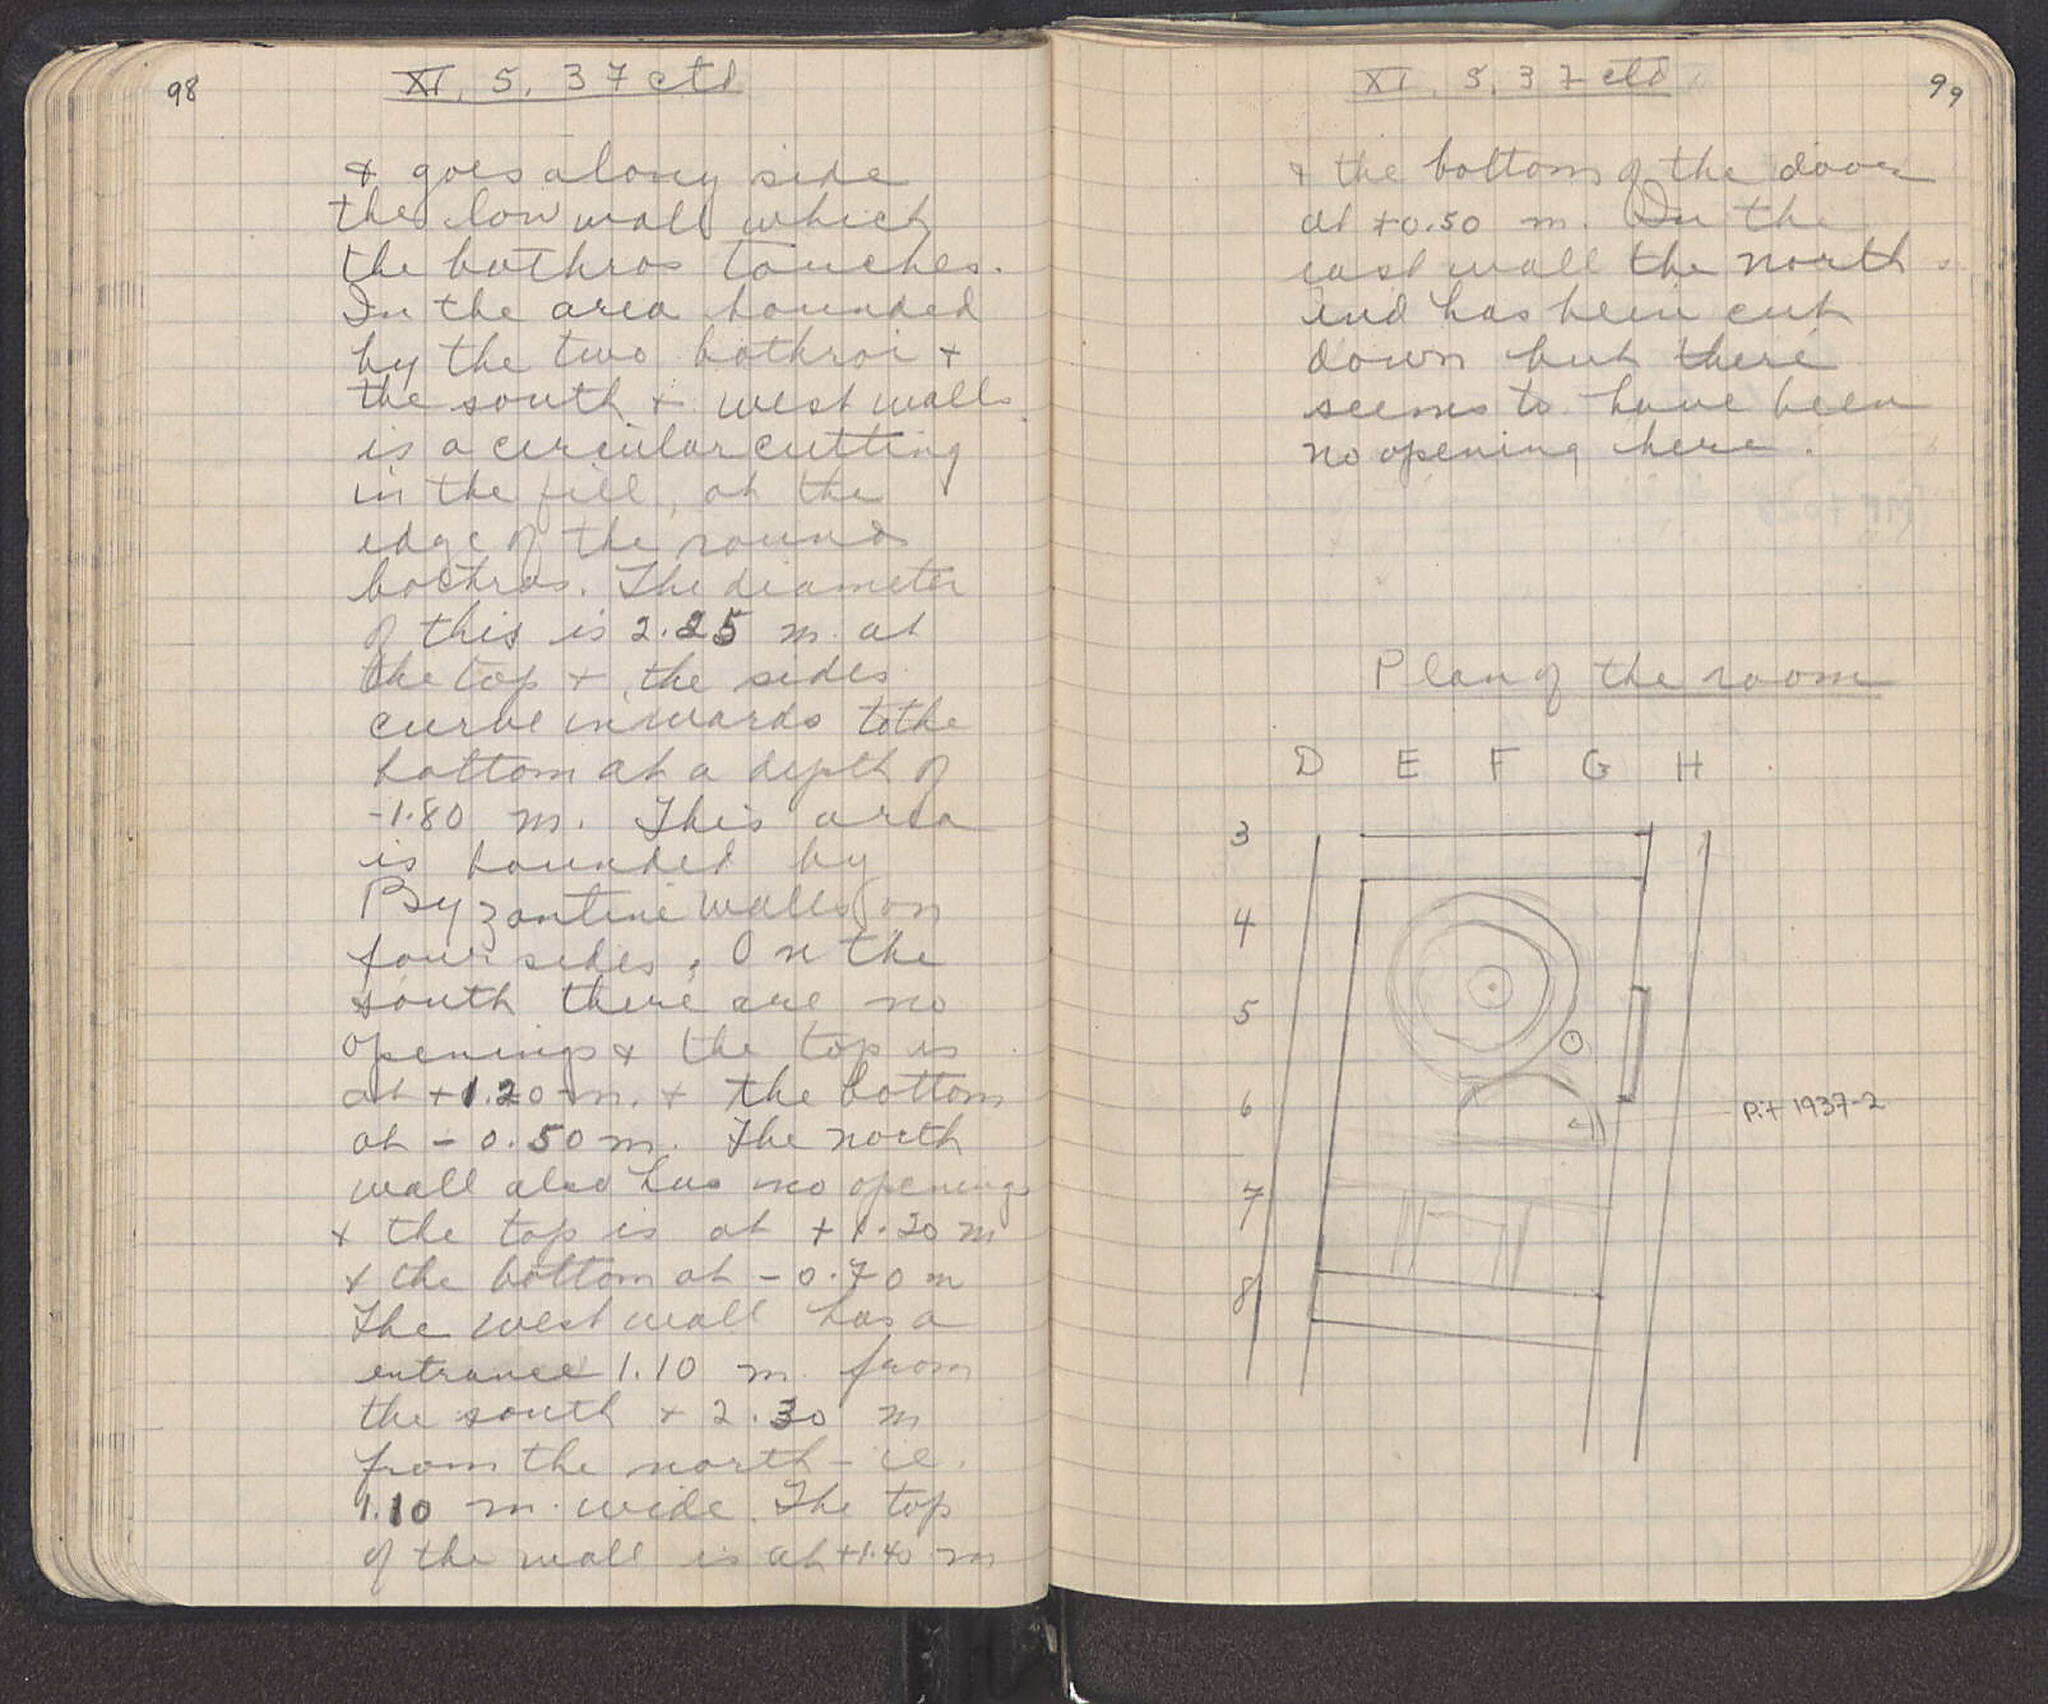 98
XI. 5. 37 ctd
& goes along side
the low wall which
the bothros touches.
In the area bounded
by the two bothroi &
the south & west walls
is a circular cutting
in the fill, at the
edge of the round
bothros. The diameter
of this is 2.25 m. at
the top & the sides
curve inwards to the
bottom at a depth of
-1.80 m. This area
is bounded by
Byzantine walls on
four sides. On the
south there are no
openings & the top is
at +1.20 m. & the bottom
at -0.50 m. The north
wall also has no openings
& the top is at +1.20 m
& the bottom at -0.70 m
The west wall has a
entrance 1.10 m. from
the south & 2.30 m
from the north - ie.
1.10 m. wide. The top
of the wall is at +1.40 m
99
XI. 5. 37 ctd
& the bottom of the door
at +0.50 m. In the
east wall the north
end has been cut
down but there
seems to have been
no opening here.
Plan of the room
D E F G H
3
4
5
6
Pit 1937-2
7
8